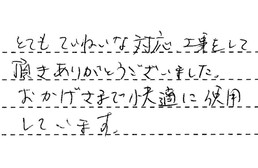 とても ていねいな 対応 工事をして
頂きありがとうございました。
おかげさまで快適に使用
しています。